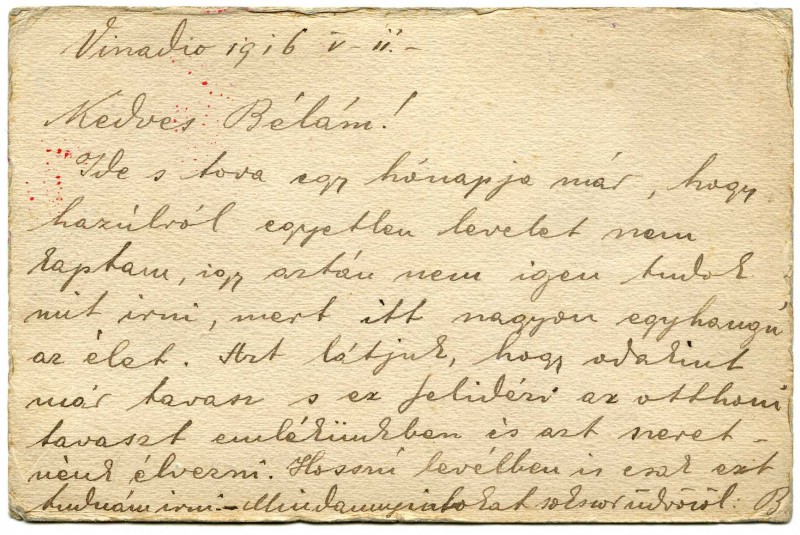 Vinadio 1916 V - 11. -
Kedves Bélám!
Ide s tova egy hónapja már, hogy
hazúlról egyetlen levelet nem
kaptam, igy aztán nem igen tudok
mit irni, mert itt nagyon egyhangú
az élet. Azt látjuk, hogy odakint
már tavasz s ez felidézi az otthoni
tavaszt emlékünkben és azt szeret-
nénk élvezni. Hosszú levélben is csak ezt
tudnám irni. - Mindannyiatokat sokszor üdvözöl: B